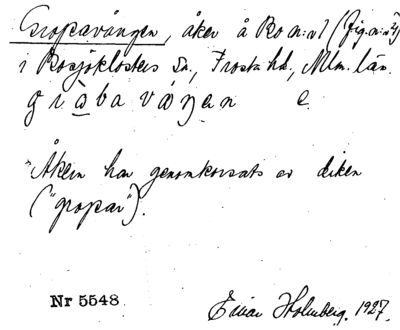 Gropavången, åker å Bo n:o 1 (fig. n:o 24)
i Bosjöklosters sn., Frosta hd, Mlm. län.
"Åkern har genomkorsats av diken
("gropar").
Nr 5548 Einar Holmberg. 1927.